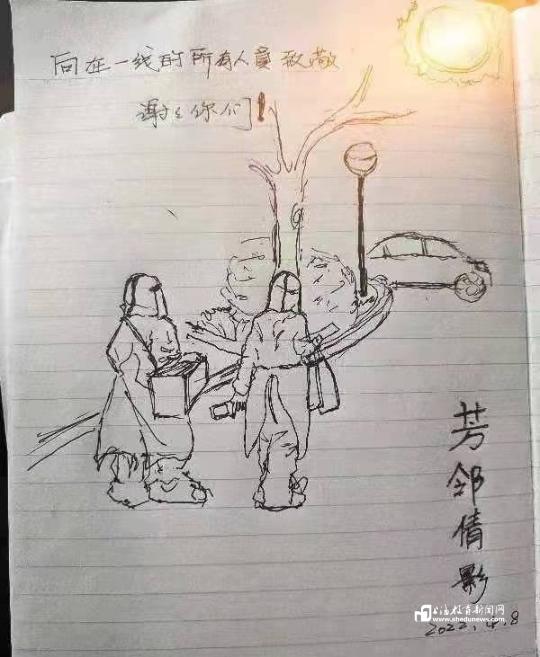 向在一线的所有人员致敬
谢々你们！
芳邻倩影
上海教育新闻网
www.shedunews.com
2022.4.8